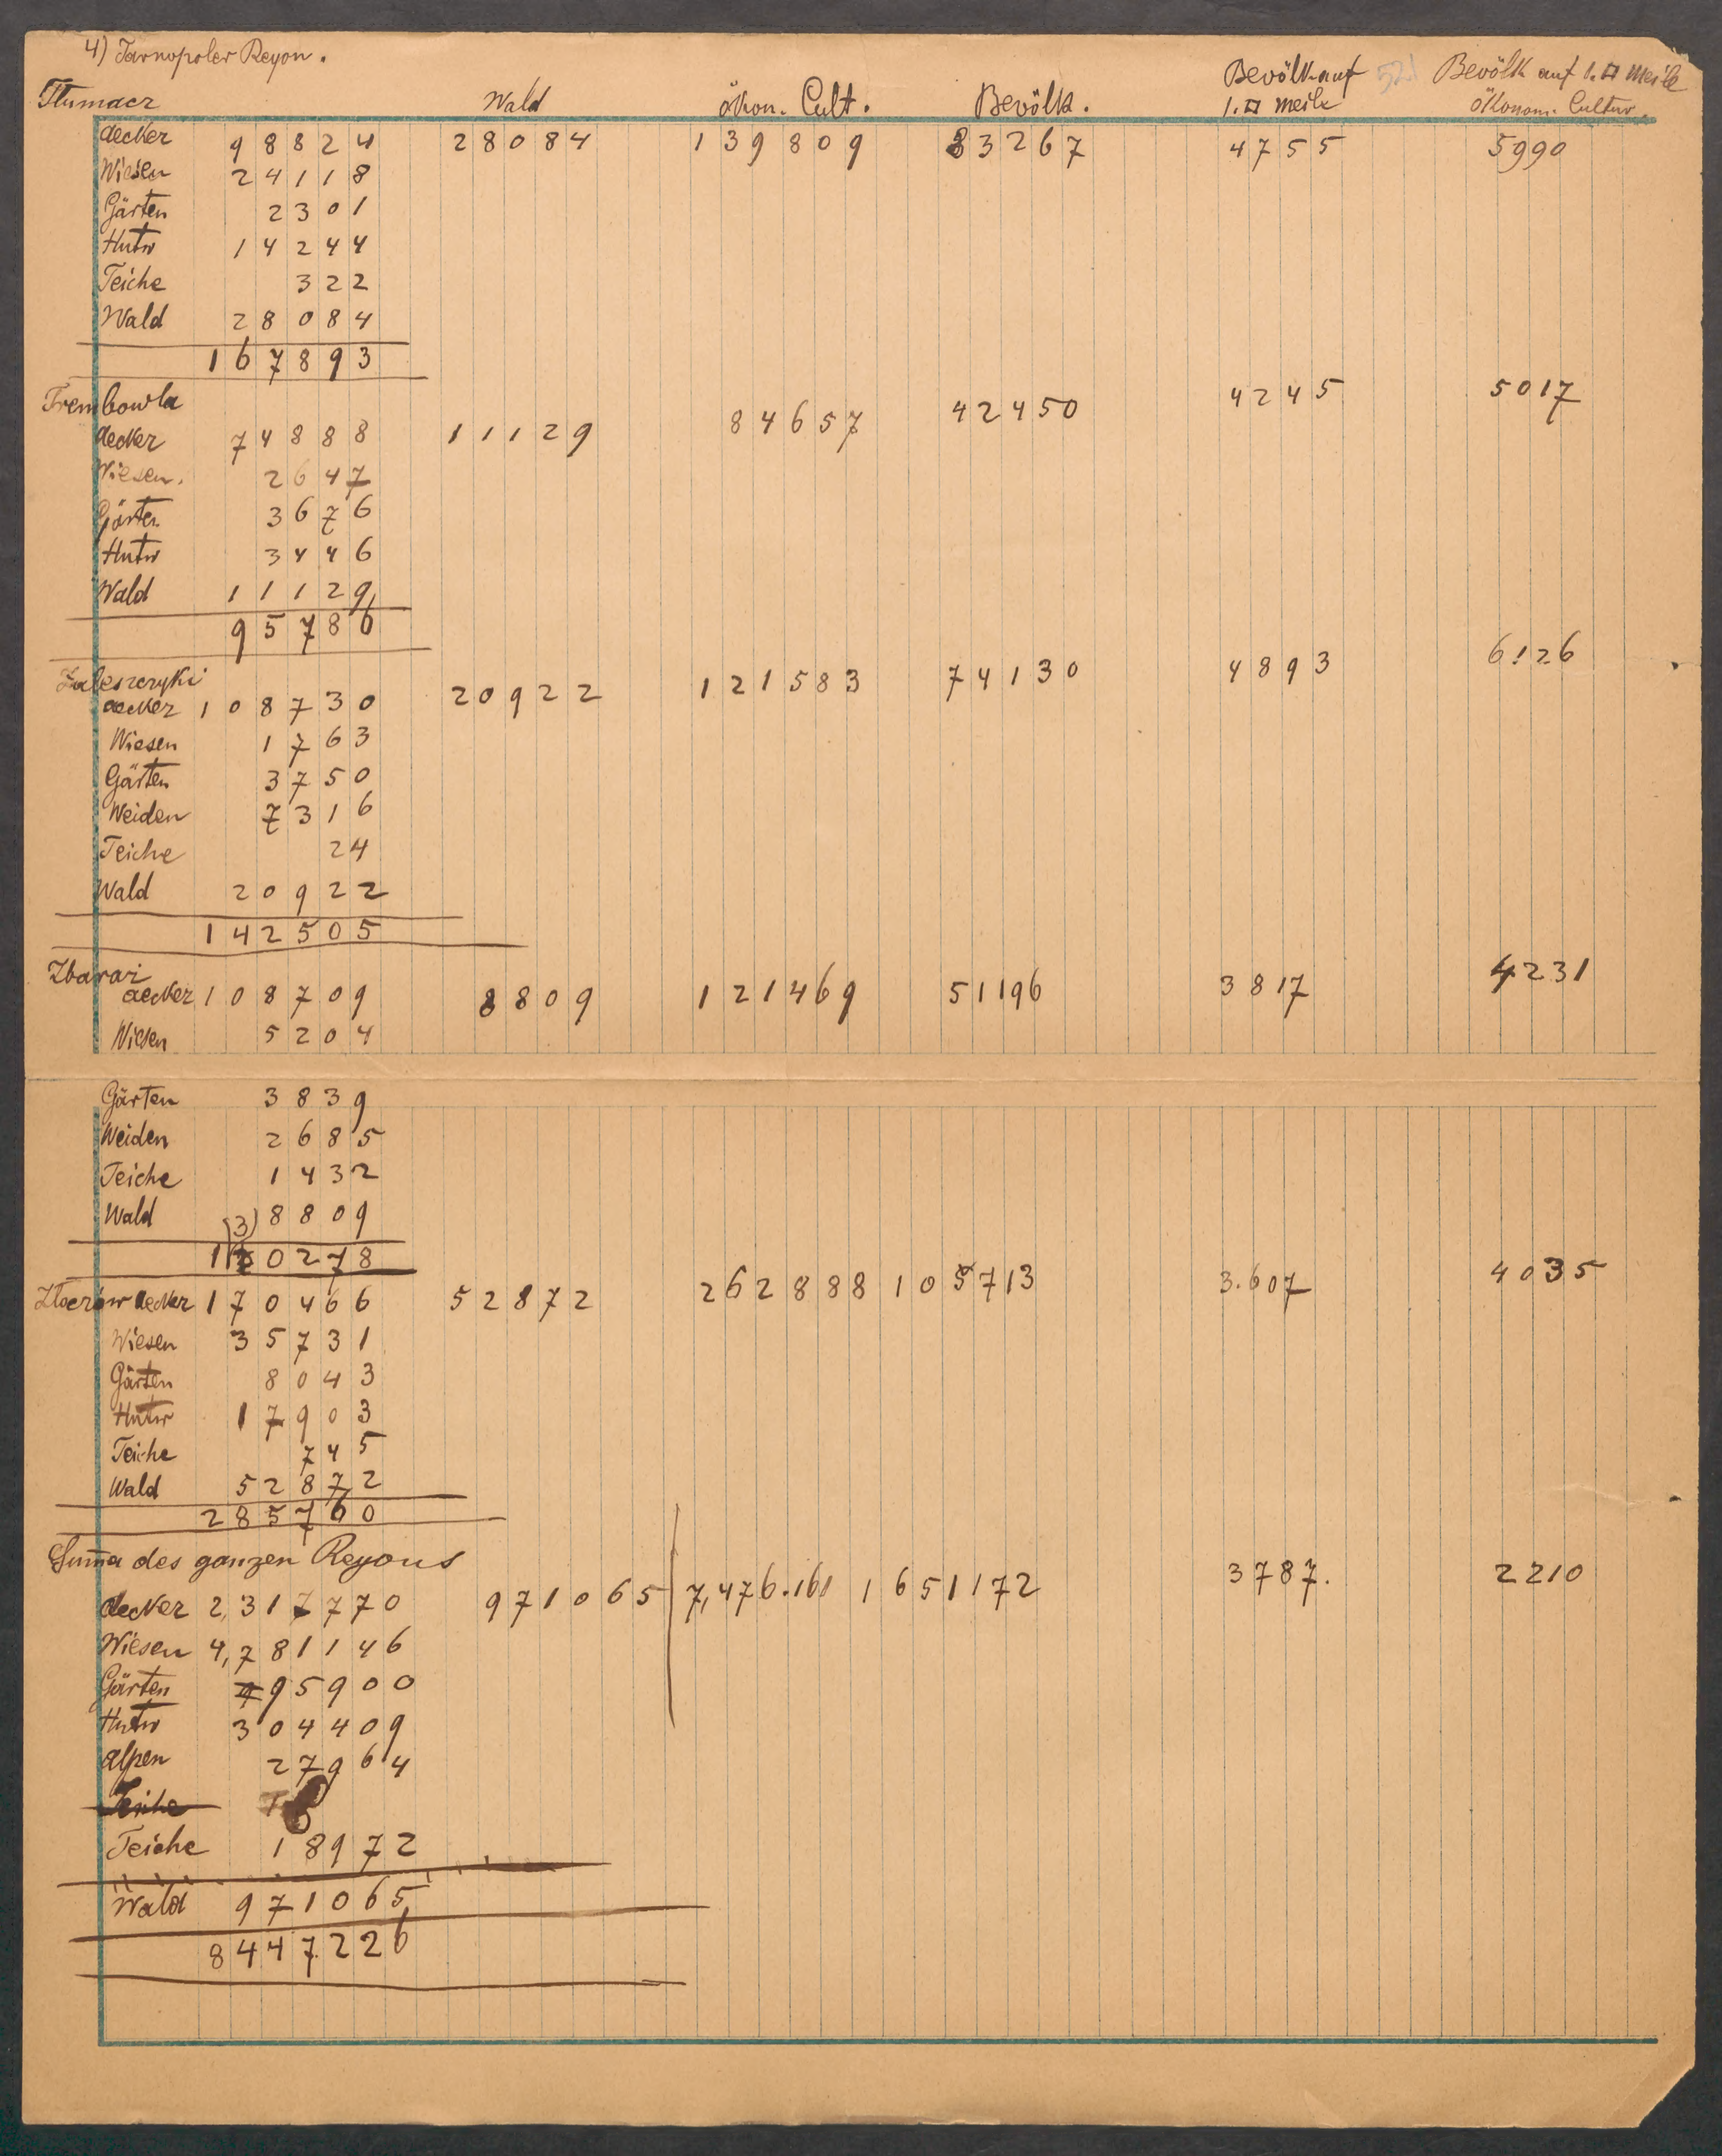 4) Tarnopoler Reyon.
Tlumacz Wald ökon. Cult. Bevölk. Bevölk auf 1.□ meile Bevölk auf 1.□ meile ökonom. Cultur.
aecker 98824 28084 139809 83267 4755 5990
Wiesen 24118
Gärten 2301
Hutw 14244
Teiche 322
Wald 28084
167893
Trembowla 42450 4245 5017
aecker 74888 11129 84657
Wiesen. 2647
Gärten 3676
Hutw 3446
Wald 11129
95786
Zaleszczyki
aecker 108730 20922 121583 74130 4893 6126
Wiesen 1763
Gärten 3750
Weiden 7316
Teiche 24
Wald 20922
142505
Zbaraż
aecker 108709 8809 121469 51196 3817 4231
Wiesen 5204
Gärten 3839
Weiden 2685
Teiche 1432
Wald 8809
(3)
1 0278
Zloczów aecker 170466 52872 262888 105713 3.607 4035
Wiesen 35731
Gärten 8043
Hutw 17903
Teiche 745
Wald 52872
285760
Suma des ganzen Reyons
aecker 2,317770 971065 7,476.161 1651172 3787. 2210
Wiesen 4,781146
Gärten 95900
Hutw 304409
alpen 27964
Teiche
Teiche 18972
Wald 971065
8447226